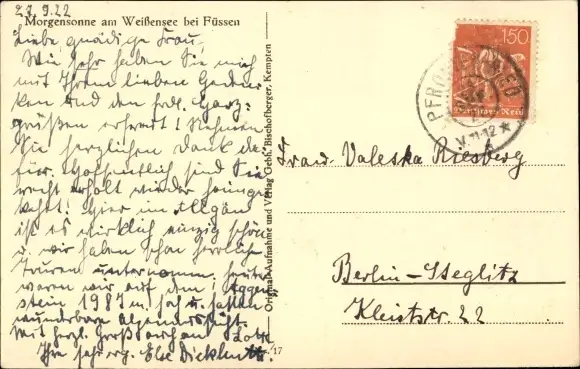 27.9.22
Morgensonne am Weißensee bei Füssen
Liebe gnädige Frau,
Wie sehr haben Sie mich
mit Ihrem lieben Geden-
ken und den frdl. Harz-
grüßen erfreut! Nehmen
Sie herzlichen Dank da-
für. Hoffentlich sind Sie
recht erholt wieder heimge-
kehrt! Hier im Allgäu
ist es wirklich einzig schön
u. wir haben schon herrliche
Touren unternomm. heute
waren wir auf dem Aggen-
stein 1987 m hoch u. hatten
wunderbare Alpenaussicht.
Mit herzl. Gruß auch an Lotte
Ihre sehr erg. Else
Original-Aufnahme und Verlag Gebh. Bischofberger, Kempten
17
150
Deutsches Reich
PFRONTEN-RIED
V. 11-12
Frau Valeska Riesberg
Berlin-Steglitz
Kleiststr. 22